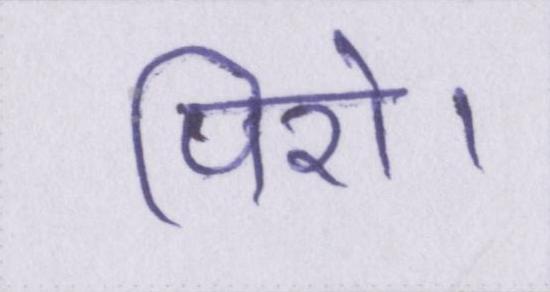 पिरो।